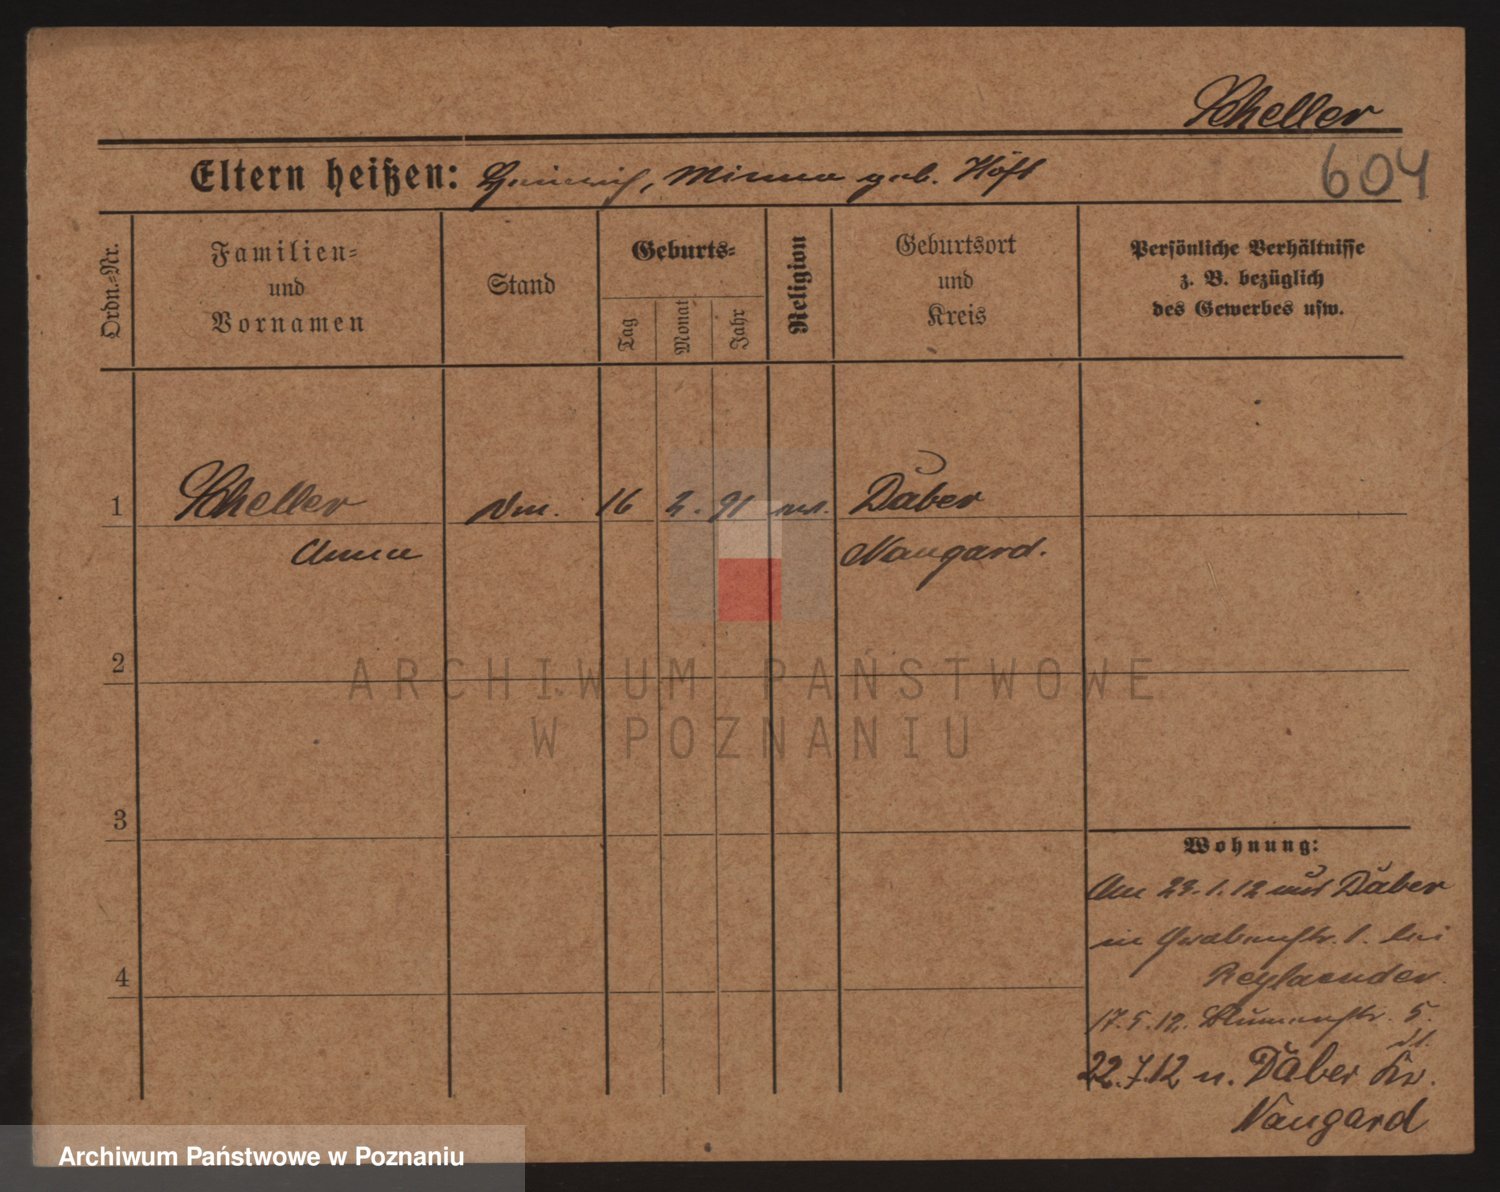 Scheller
604
Eltern heißen: Heinrich, Minna geb. Höft
Ordn.-Nr.
Familien-
und
Vornamen
Stand
Geburts-
Tag
Monat
Jahr
Religion
Geburtsort
und
Kreis
Persönliche Verhältnisse
z. B. bezüglich
des Gewerbes usw.
1
Scheller
16 2. 91
Daber
Anna
Naugard.
2
ARCHIWUM PAŃSTWOWE
W POZNANIU
3
Wohnung:
Am 23.1.12 aus Daber
in Grabenstr. 1. bei
4
17.5.12. Blumenstr. 5.
22.7.12 n. Daber Kr.
Naugard
Archiwum Państwowe w Poznaniu